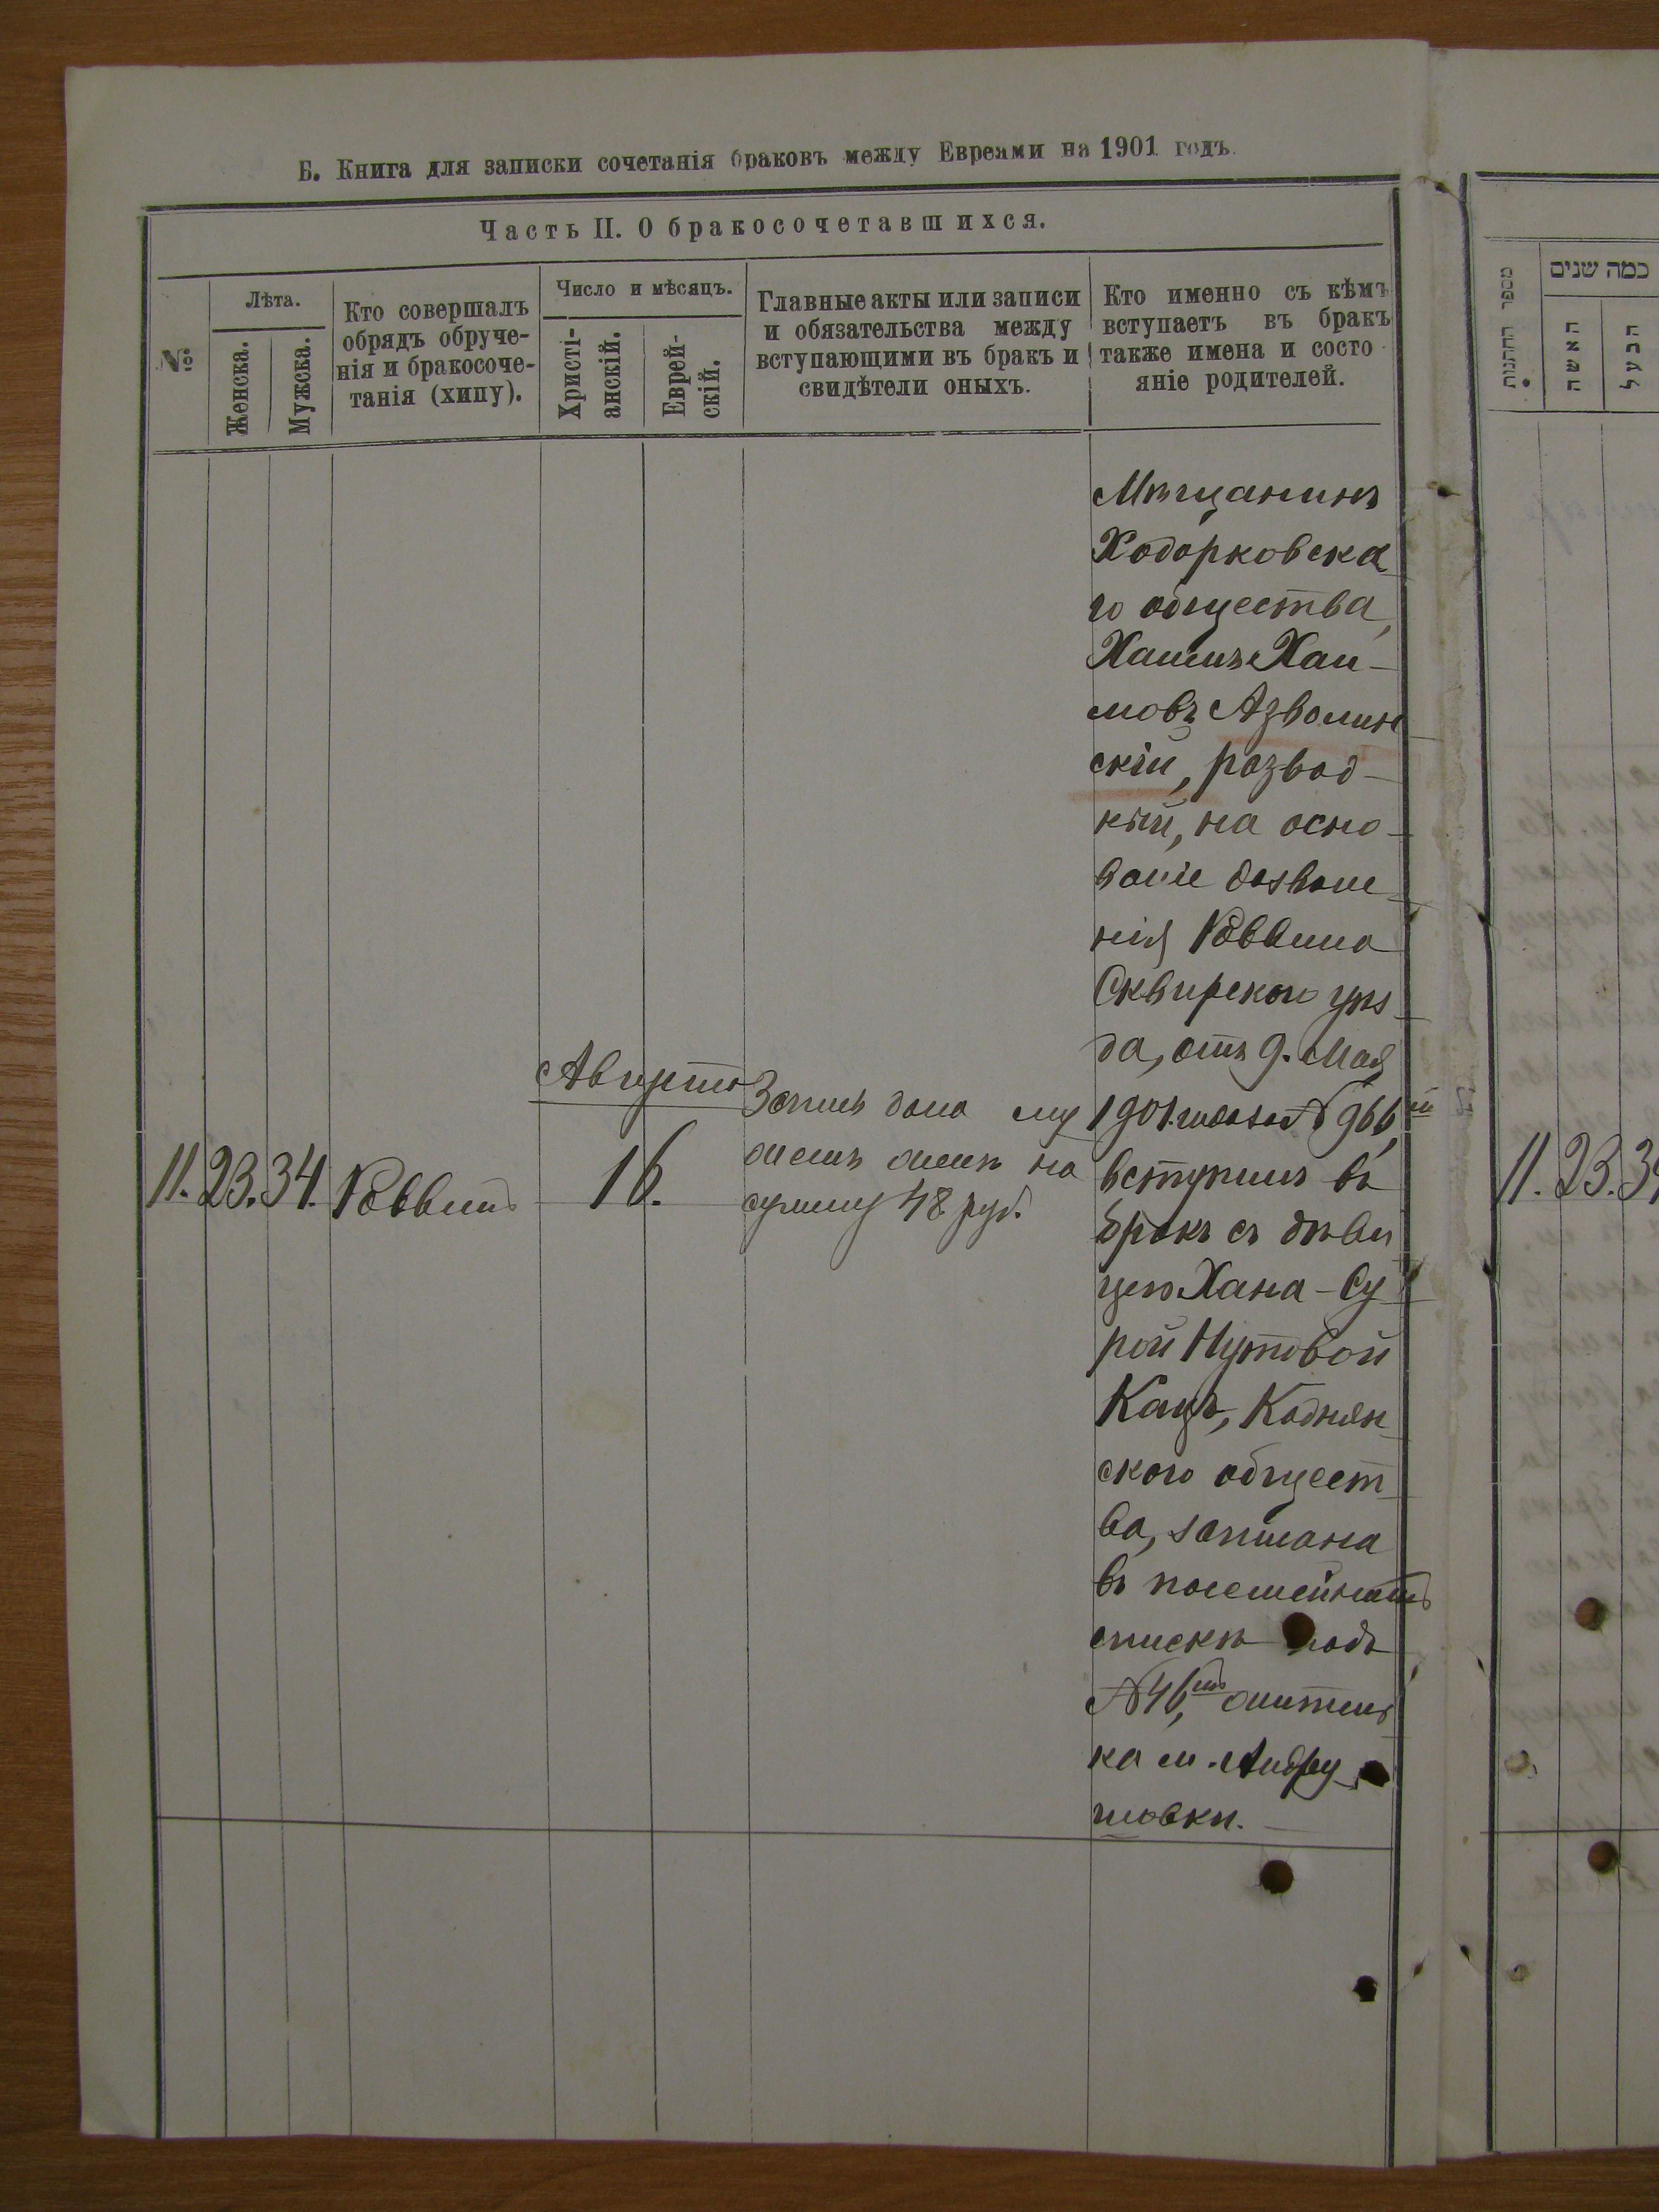 Б. Книга для записки сочетанія браковъ между Евреями на 1901 годъ.
Часть II. О бракосочетавшихся.
№
Лѣта.
Женска.
Мужска.
Кто совершалъ
обрядъ обруче-
нія и бракосоче-
танія (хипу).
Число и мѣсяцъ.
Христі-
анскій.
Еврей-
скій.
Главные акты или записи
и обязательства между
вступающими въ бракъ и
свидѣтели оныхъ.
Кто именно съ кѣмъ
вступаетъ въ бракъ
также имена и состо
яніе родителей.
11.
23.
34.
Раввинъ
Августа
16.
Запись дана му
жемъ женѣ на
сумму 48 руб.
Мѣщанинъ
Ходорковска
го общества,
Хаимъ Хаи-
мовъ Азволин
скій, развод-
ный, на осно-
ваніе дозволе
нія Раввина
Сквирскаго уѣз
да, отъ 9. Мая
1901. года за № 966,
вступилъ въ
бракъ съ дѣви
цею Хана-Су
рой Нутовой
Кацъ, Коднян
скаго общест
ва, записана
въ посемейномъ
спискѣ подъ
№ 46, житель
ка м. Андру
шовки.
מספר החתונות
כמה שנים
האשה
הבעל
11. 23. 34